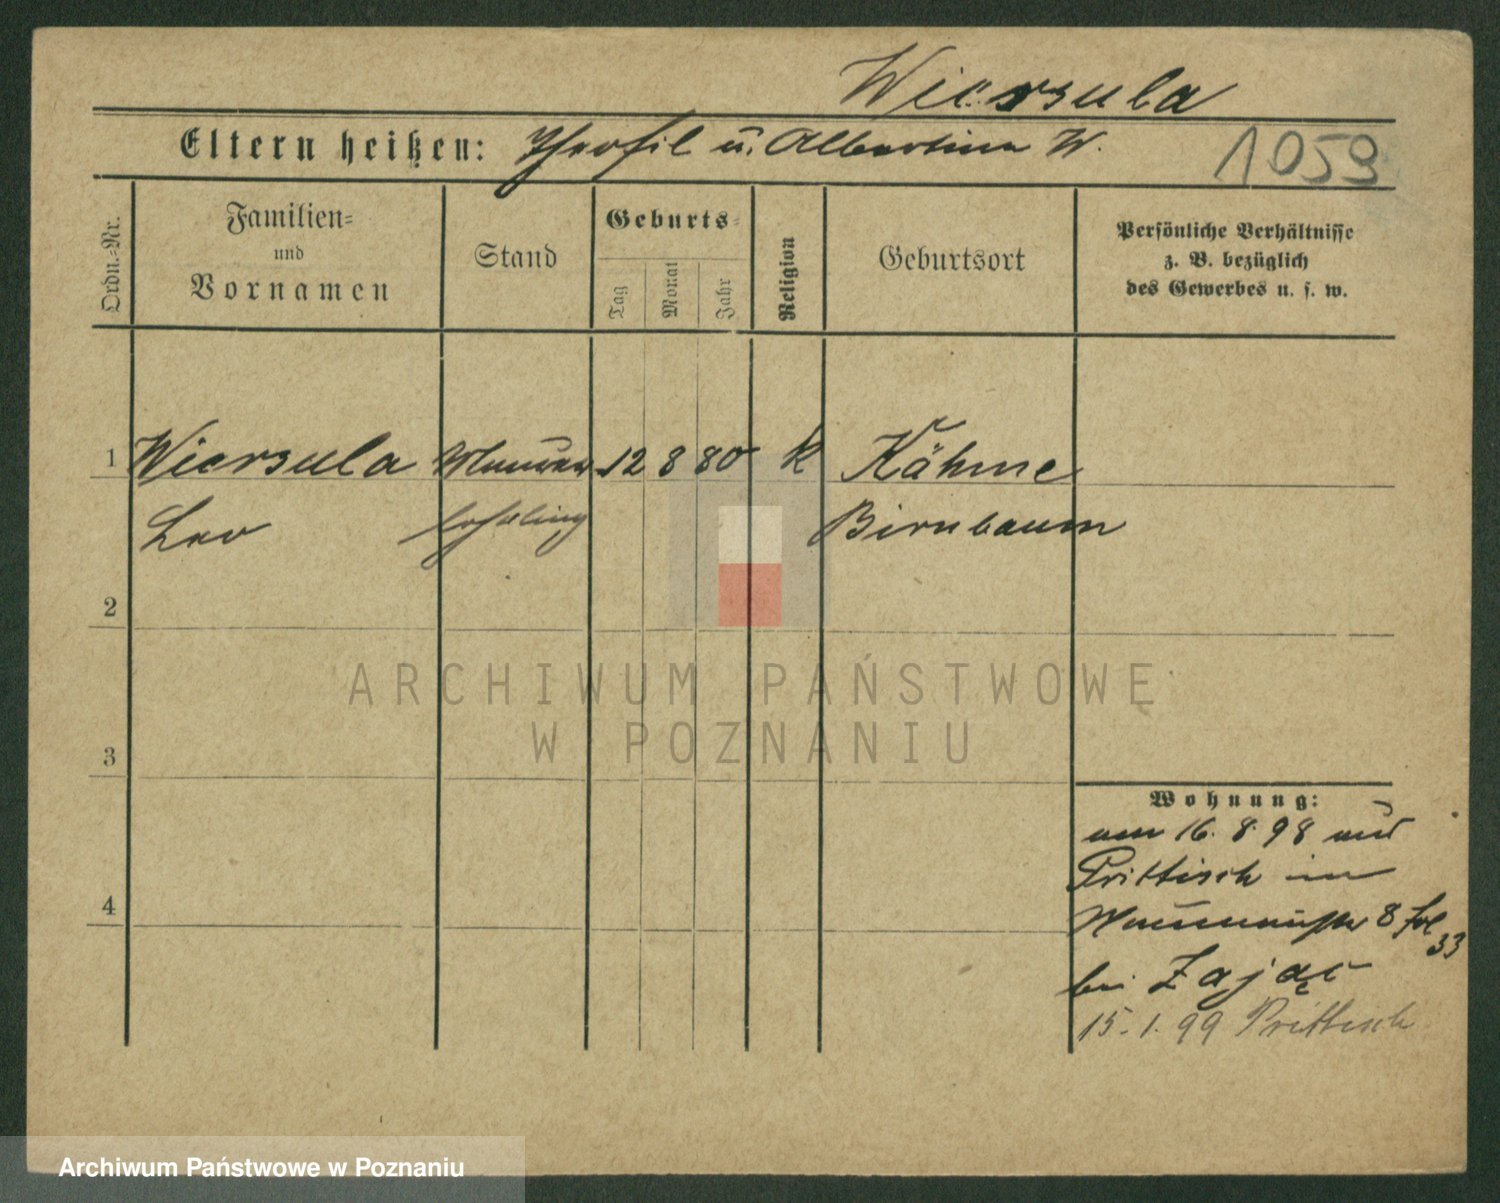 Wiersula
Eltern heißen: Theofil u. Albertine W.
1059
Ordn.-Nr.
Familien-
und
Vornamen
Stand
Geburts-
Tag
Monat
Jahr
Religion
Geburtsort
Persönliche Verhältnisse
z. B. bezüglich
des Gewerbes u. s. w.
1 Wiersula Maurer 12 8 80 k Kähme
Leo lehrling Birnbaum
2
3
4
ARCHIWUM PAŃSTWOWE
W POZNANIU
Wohnung:
am 16. 8. 98 aus
Prittisch in
8
33
bei Zając
15. 1. 99 Prittisch
Archiwum Państwowe w Poznaniu